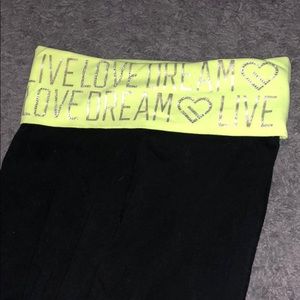 LIVE LOVE DREAM
LOVE DREAM LIVE